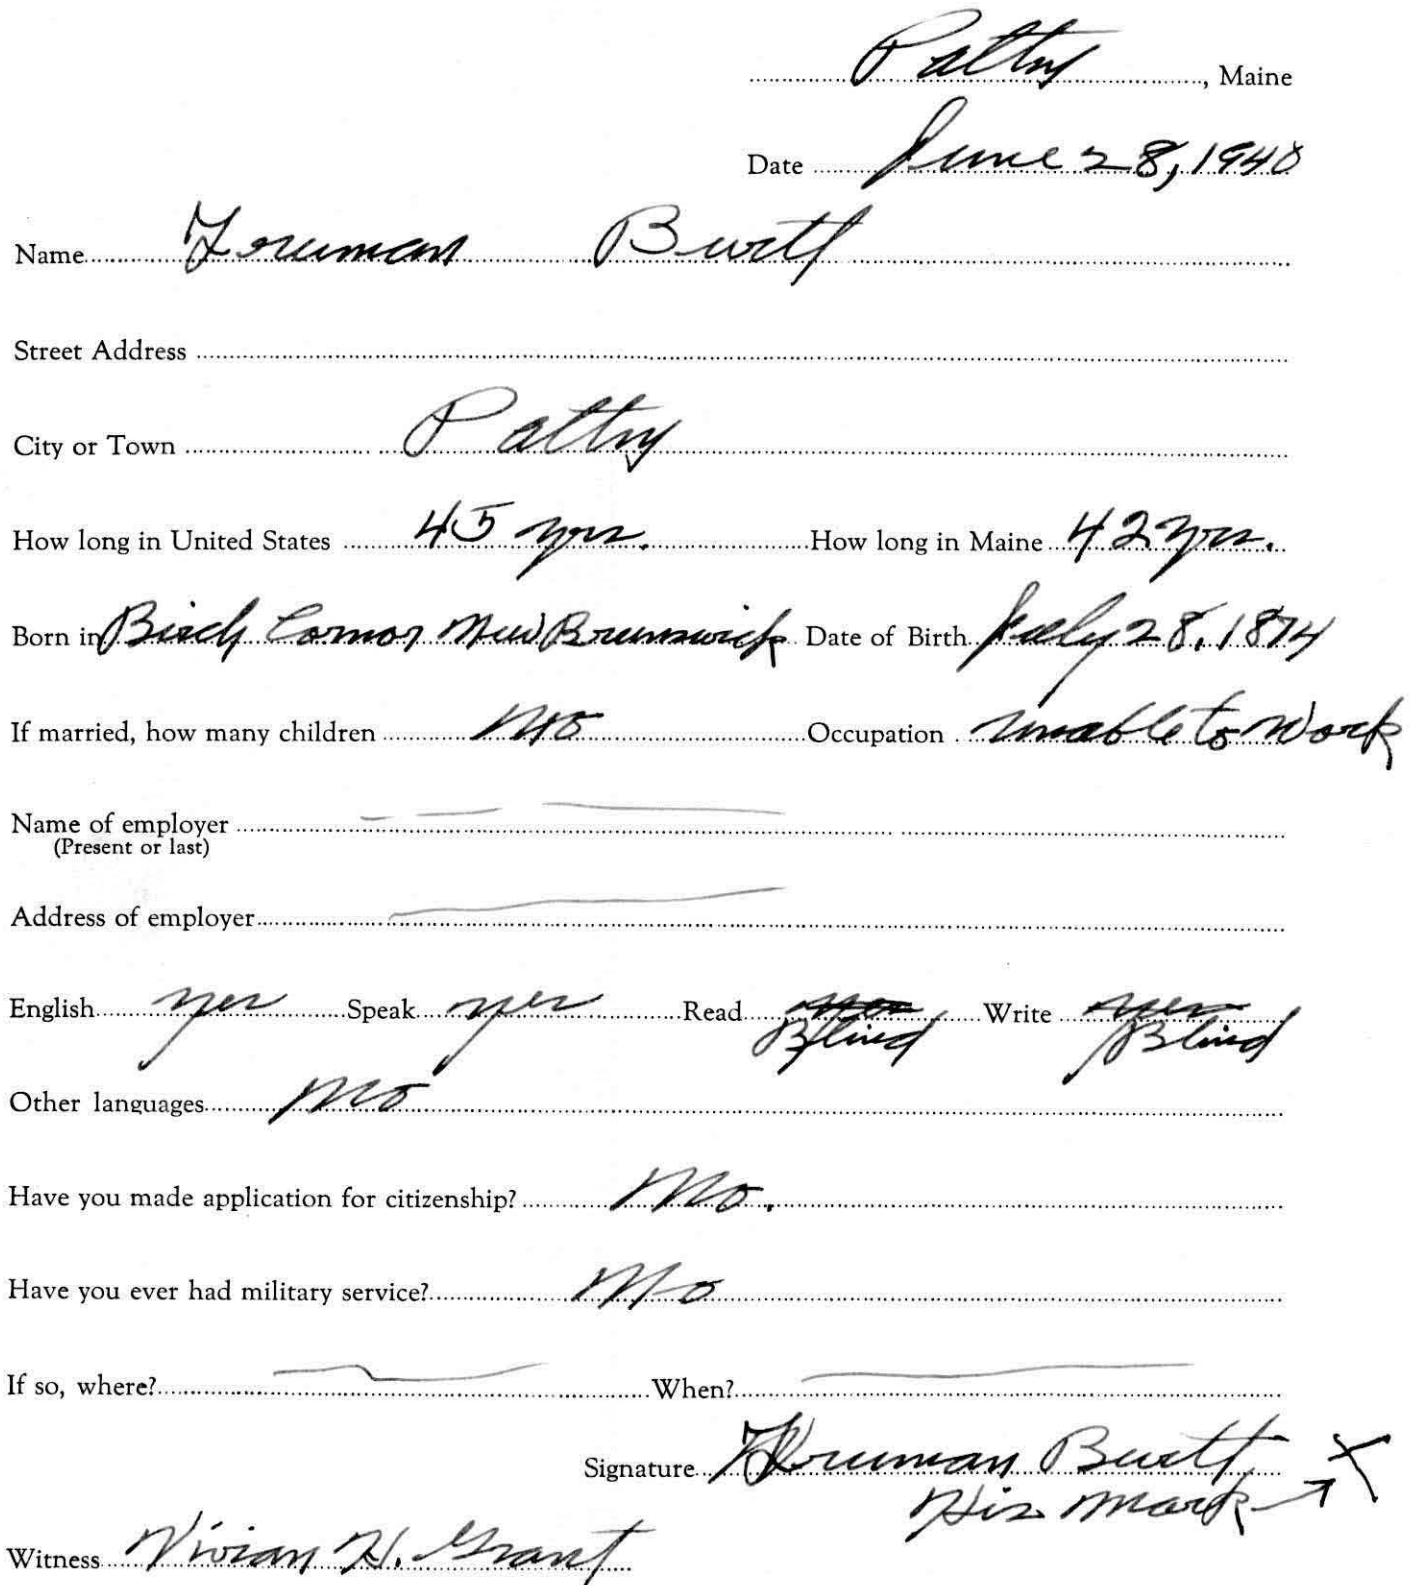 Patten, Maine
Date June 28, 1940
Name Truman Burtt
Street Address
City or Town Patten
How long in United States 45 yrs. How long in Maine 42 yrs.
Born in Birch Cornor New Brunswick Date of Birth July 28, 1874
If married, how many children No Occupation unable to Work
Name of employer
(Present or last)
Address of employer
English yes Speak yes Read yes Blind Write yes Blind
Other languages No
Have you made application for citizenship? No.
Have you ever had military service? No
If so, where? When?
Signature Truman Burtt X
His mark
Witness Vivian H. Grant